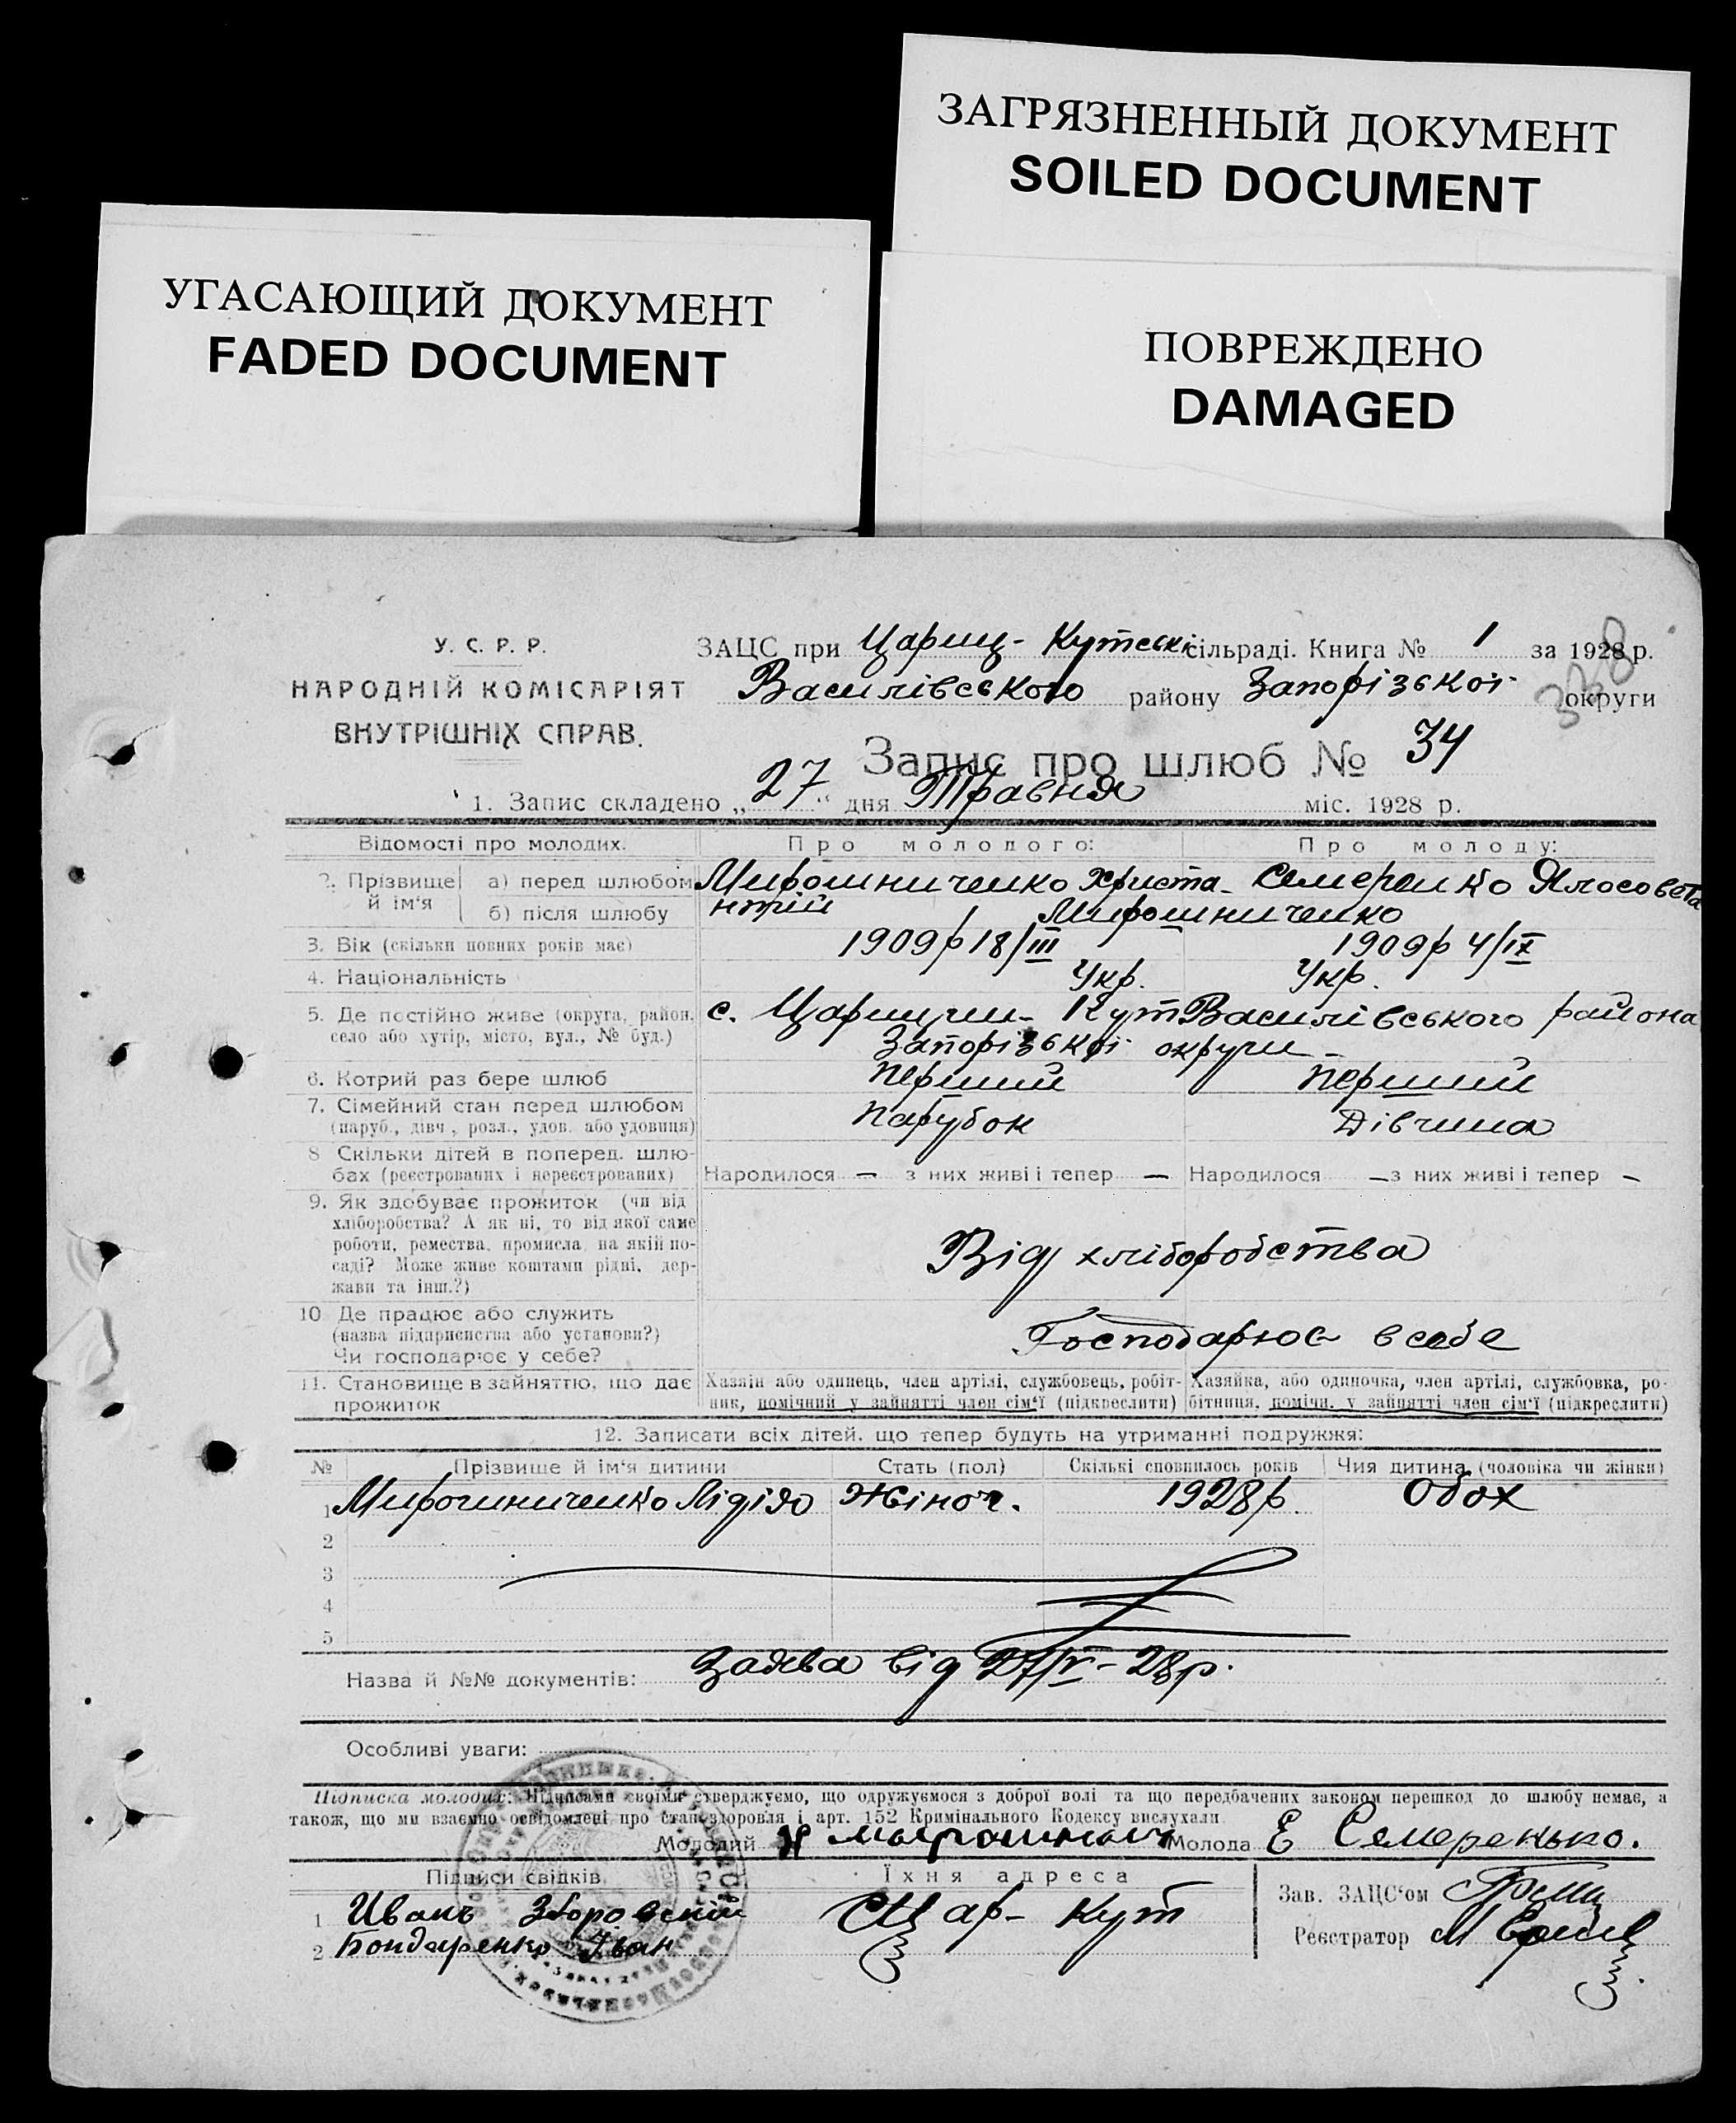 ЗАГРЯЗНЕННЫЙ ДОКУМЕНТ
SOILED DOCUMENT
УГАСАЮЩИЙ ДОКУМЕНТ
FADED DOCUMENT
ПОВРЕЖДЕНО
DAMAGED
У. С. Р. Р.
НАРОДНІЙ КОМІСАРІЯТ
ВНУТРІШНІХ СПРАВ.
ЗАЦС при Цариц- Кутськ сільраді. Книга № 1 за 1928 р.
Василівського району Запорізької округи
Запис про шлюб № 34
1. Запис складено „27“ дня Травня міс. 1928 р.
Відомості про молодих. Про молодого: Про молоду:
2. Прізвище й ім'я а) перед шлюбом Мирошниченко Христа- Семеренко Ялосовета
б) після шлюбу нтій Мирошниченко
3. Вік (скільки повних років має) 1909р 18/III 1909р 4/IX
4. Національність Укр. Укр.
5. Де постійно живе (округа, район, с. Царицин- Кут Василівського района
село або хутір, місто, вул., № буд.) Запорізької округи -
6. Котрий раз бере шлюб Перший Перший
7. Сімейний стан перед шлюбом Парубок Дівчина
(паруб., дівч., розл., удов. або удовиця)
8 Скільки дітей в поперед. шлю-
бах (реєстрованих і нереєстрованих) Народилося — з них живі і тепер — Народилося — з них живі і тепер —
9. Як здобуває прожиток (чи від
хліборобства? А як ні, то від якої саме
роботи, ремества, промисла, на якій по-
саді? Може живе коштами рідні, дер-
жави та інш.?) Від хліборобства
10 Де працює або служить
(назва підприємства або установи?) Господарює в себе
Чи господарює у себе?
11. Становище в зайняттю, що дає Хазяїн або одинець, член артілі, службовець, робіт- Хазяйка, або одиночка, член артілі, службовка, ро-
прожиток ник, помічний у зайнятті член сім'ї (підкреслити) бітниця, помічн. у зайнятті член сім'ї (підкреслити)
12. Записати всіх дітей, що тепер будуть на утриманні подружжя:
№ Прізвище й ім'я дитини Стать (пол) Скількі сповнилось років Чия дитина (чоловіка чи жінки)
1 Мирошниченко Лідія Жіноч. 1928р. Обох
2
3
4
5
Назва й №№ документів: Заява від 27/V-28р.
Особливі уваги:
Підписка молодих: Підписами своїми стверджуємо, що одружуємося з доброї волі та що передбачених законом перешкод до шлюбу немає, а
також, що ми взаємно освідомлені про стан здоровля і арт. 152 Кримінального Кодексу вислухали
Молодий Молода Е Семеренько.
Підписи свідків Їхня адреса Зав. ЗАЦС'ом
1 Иванъ Зборовский Цар- Кут Реєстратор М
2 Бондаренко Іван